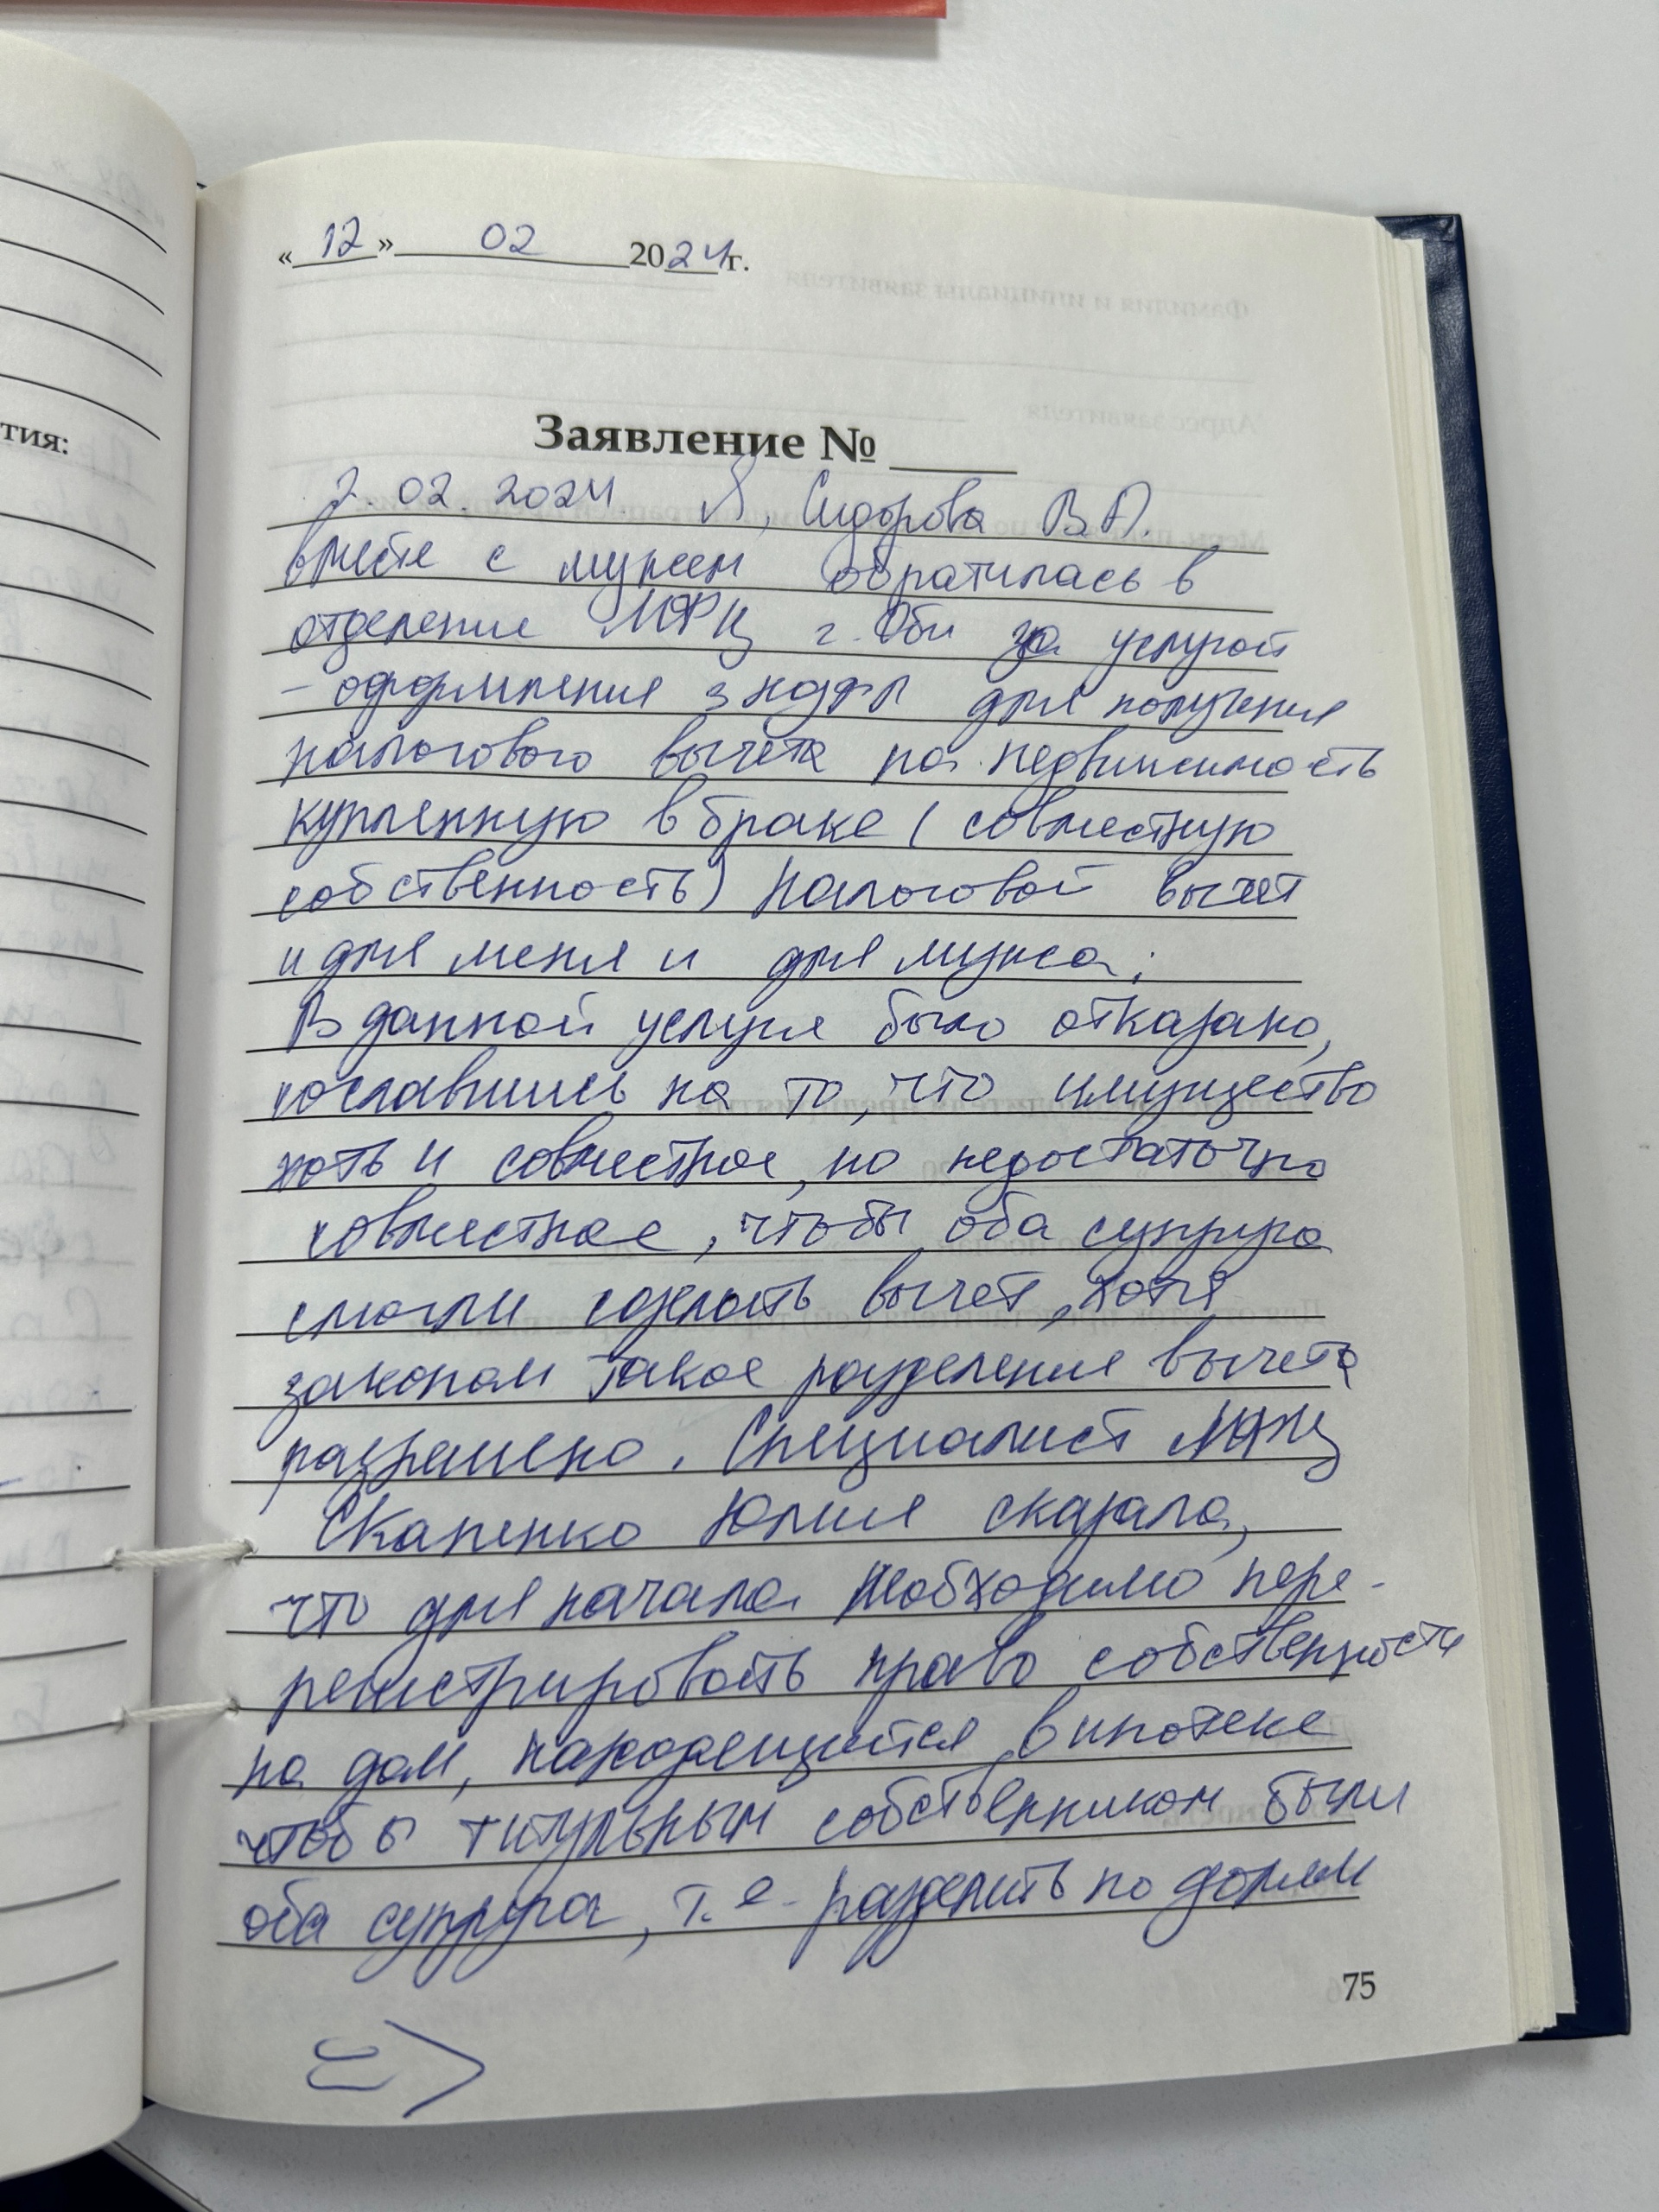 тия:
« 12 » 02 2024 г.
Заявление №
2.02.2024. Я, Сидорова В.А.
вместе с мужем обратилась в
отделение МФЦ г. Оби за услугой
- оформления 3 НДФЛ для получения
налогового вычета на недвижимость
купленную в браке (совместную
собственность) Налоговой вычет
и для меня и для мужа;
В данной услуге было отказано,
пославшись на то, что имущество
хоть и совместное, но недостаточно
совместное, чтобы оба супруга
смогли сделать вычет, хотя
законом такое разделение вычета
разрешено. Специалист МФЦ
Скапенко Юлия сказала,
что для начала необходимо пере-
регистрировать право собственности
на дом, находящийся в ипотеке
чтобы титульным собственником были
оба супруга, т.е. разделить по долям
75
=>